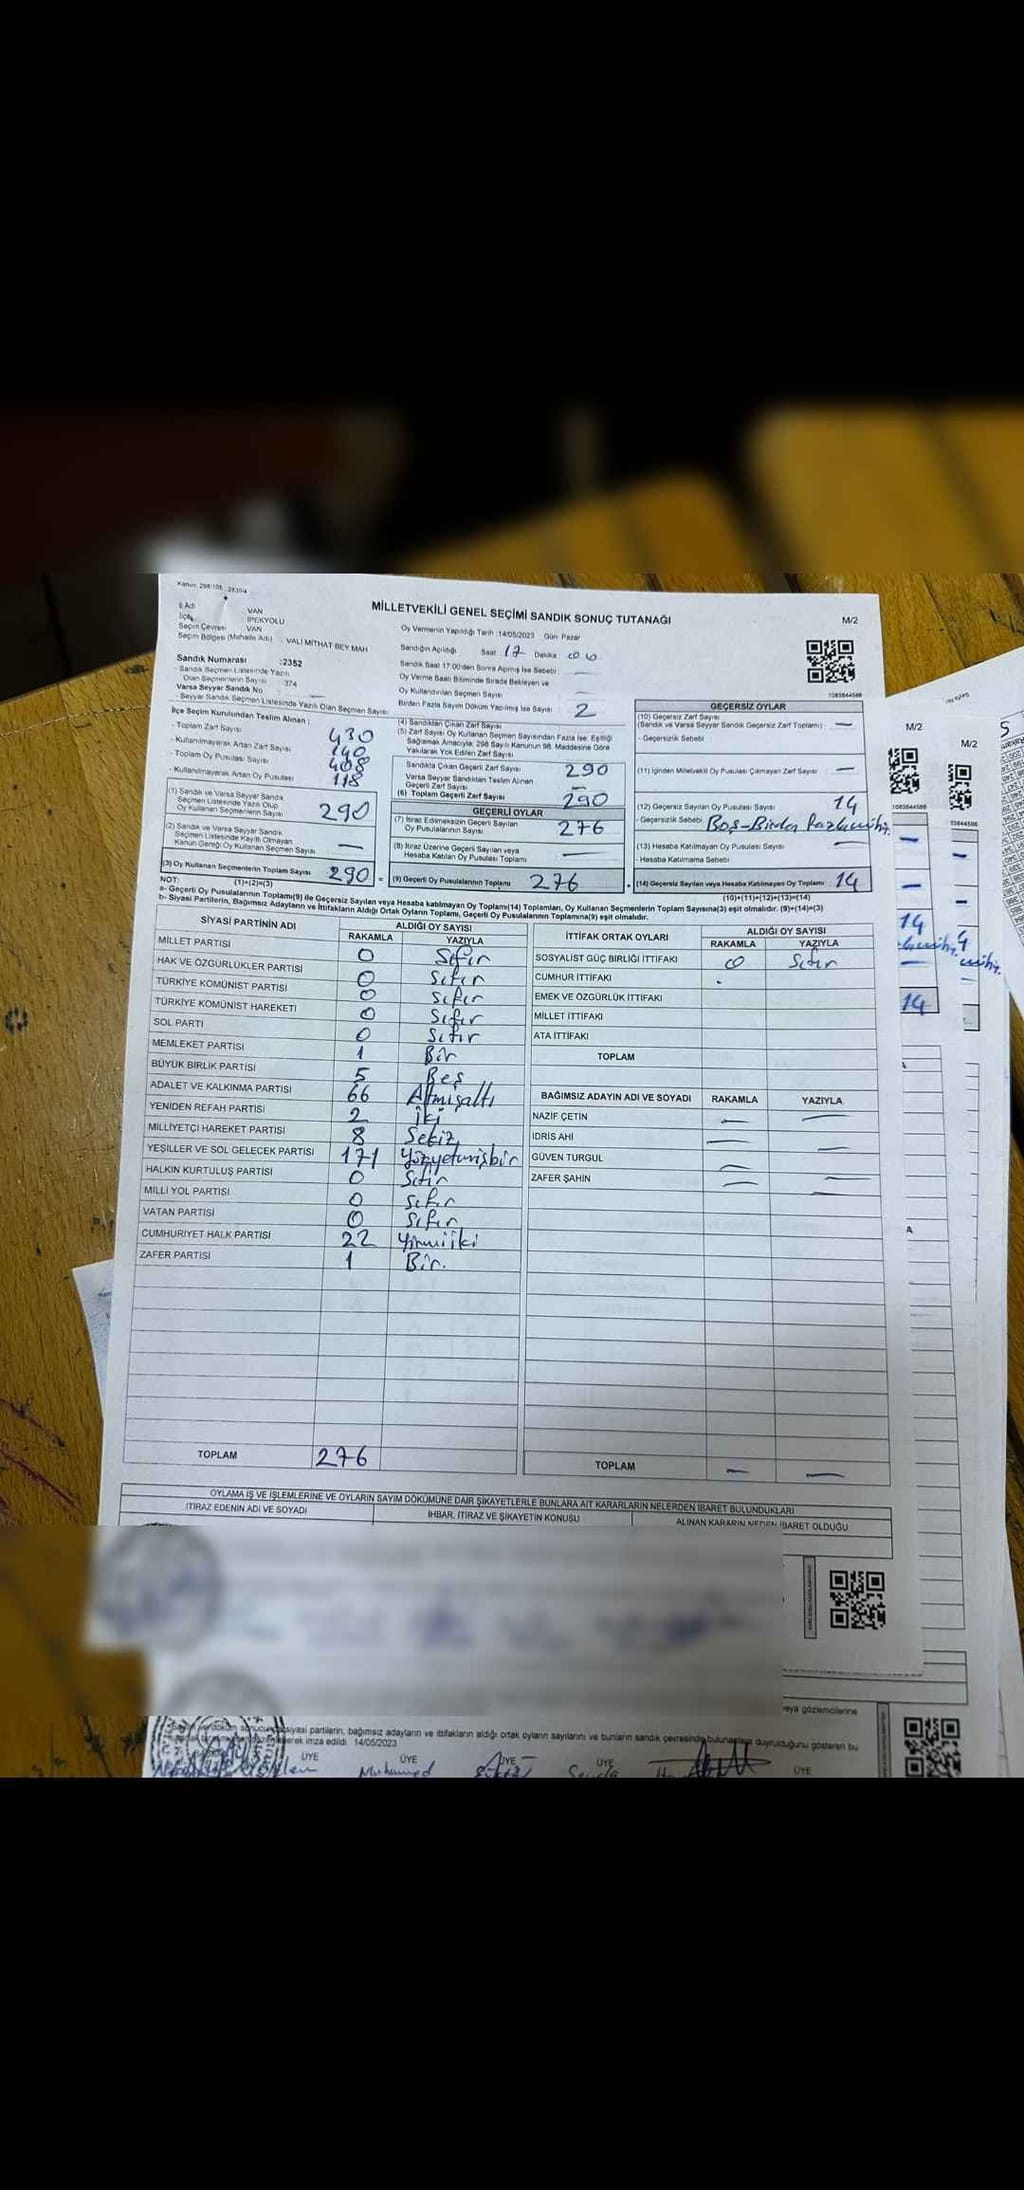 MİLLETVEKİLİ GENEL SEÇİMİ SANDIK SONUÇ TUTANAĞI
M/2
İl Adı VAN
İlçe İPEKYOLU
Seçim Çevresi VAN
Seçim Bölgesi (Mahalle Adı) : VALI MİTHAT BEY MAH
Oy Vermenin Yapıldığı Tarih :14/05/2023 Gün Pazar
Sandığın Açıldığı Saat 17 Dakika 00
Sandık Numarası :2352
- Sandık Seçmen Listesinde Yazılı Olan Seçmenlerin Sayısı : 374
Varsa Seyyar Sandık No
- Seyyar Sandık Seçmen Listesinde Yazılı Olan Seçmen Sayısı
Sandık Saat 17:00'den Sonra Açılmış İse Sebebi
Oy Verme Saati Bitiminde Sırada Bekleyen ve
Oy Kullandırılan Seçmen Sayısı
Birden Fazla Sayım Döküm Yapılmış İse Sayısı 2
1083844586
İlçe Seçim Kurulundan Teslim Alınan :
- Toplam Zarf Sayısı 430
- Kullanılmayarak Artan Zarf Sayısı 140
- Toplam Oy Pusulası Sayısı 408
- Kullanılmayarak Artan Oy Pusulası 118
(1) Sandık ve Varsa Seyyar Sandık
Seçmen Listesinde Yazılı Olup
Oy Kullanan Seçmenlerin Sayısı 290
(2) Sandık ve Varsa Seyyar Sandık
Seçmen Listesinde Kayıtlı Olmayan
Kanun Gereği Oy Kullanan Seçmen Sayısı —
(3) Oy Kullanan Seçmenlerin Toplam Sayısı 290 =
(1)+(2)=(3)
(4) Sandıktan Çıkan Zarf Sayısı
(5) Zarf Sayısı Oy Kullanan Seçmen Sayısından Fazla İse, Eşitliği
Sağlamak Amacıyla, 298 Sayılı Kanunun 98. Maddesine Göre
Yakılarak Yok Edilen Zarf Sayısı
Sandıkta Çıkan Geçerli Zarf Sayısı 290
Varsa Seyyar Sandıktan Teslim Alınan
Geçerli Zarf Sayısı —
(6) Toplam Geçerli Zarf Sayısı 290
GEÇERLİ OYLAR
(7) İtiraz Edilmeksizin Geçerli Sayılan
Oy Pusulalarının Sayısı 276
(8) İtiraz Üzerine Geçerli Sayılan veya
Hesaba Katılan Oy Pusulası Toplamı —
(9) Geçerli Oy Pusulalarının Toplamı 276
GEÇERSİZ OYLAR
(10) Geçersiz Zarf Sayısı
(Sandık ve Varsa Seyyar Sandık Geçersiz Zarf Toplamı) —
- Geçersizlik Sebebi
(11) İçinden Milletvekili Oy Pusulası Çıkmayan Zarf Sayısı —
(12) Geçersiz Sayılan Oy Pusulası Sayısı 14
- Geçersizlik Sebebi Boş-Birden Fazla
(13) Hesaba Katılmayan Oy Pusulası Sayısı —
- Hesaba Katılmama Sebebi
(14) Geçersiz Sayılan veya Hesaba Katılmayan Oy Toplamı 14
(10)+(11)+(12)+(13)=(14)
NOT:
a- Geçerli Oy Pusulalarının Toplamı(9) ile Geçersiz Sayılan veya Hesaba katılmayan Oy Toplamı(14) Toplamları, Oy Kullanan Seçmenlerin Toplam Sayısına(3) eşit olmalıdır. (9)+(14)=(3)
b- Siyasi Partilerin, Bağımsız Adayların ve İttifakların Aldığı Ortak Oyların Toplamı, Geçerli Oy Pusulalarının Toplamına(9) eşit olmalıdır.
SİYASİ PARTİNİN ADI ALDIĞI OY SAYISI
RAKAMLA YAZIYLA
MİLLET PARTİSİ 0 Sıfır
HAK VE ÖZGÜRLÜKLER PARTİSİ 0 Sıfır
TÜRKİYE KOMÜNİST PARTİSİ 0 Sıfır
TÜRKİYE KOMÜNİST HAREKETİ 0 Sıfır
SOL PARTİ 0 Sıfır
MEMLEKET PARTİSİ 1 Bir
BÜYÜK BİRLİK PARTİSİ 5 Beş
ADALET VE KALKINMA PARTİSİ 66 Altmışaltı
YENİDEN REFAH PARTİSİ 2 İki
MİLLİYETÇİ HAREKET PARTİSİ 8 Sekiz
YEŞİLLER VE SOL GELECEK PARTİSİ 171 Yüzyetmişbir
HALKIN KURTULUŞ PARTİSİ 0 Sıfır
MİLLİ YOL PARTİSİ 0 Sıfır
VATAN PARTİSİ 0 Sıfır
CUMHURİYET HALK PARTİSİ 22 Yirmiiki
ZAFER PARTİSİ 1 Bir.
TOPLAM 276
İTTİFAK ORTAK OYLARI ALDIĞI OY SAYISI
RAKAMLA YAZIYLA
SOSYALİST GÜÇ BİRLİĞİ İTTİFAKI 0 Sıfır
CUMHUR İTTİFAKI
EMEK VE ÖZGÜRLÜK İTTİFAKI
MİLLET İTTİFAKI
ATA İTTİFAKI
TOPLAM
BAĞIMSIZ ADAYIN ADI VE SOYADI RAKAMLA YAZIYLA
NAZIF ÇETİN — —
İDRİS AHİ — —
GÜVEN TURGUL — —
ZAFER ŞAHİN — —
TOPLAM — —
OYLAMA İŞ VE İŞLEMLERİNE VE OYLARIN SAYIM DÖKÜMÜNE DAİR ŞİKAYETLERLE BUNLARA AİT KARARLARIN NELERDEN İBARET BULUNDUKLARI
İTİRAZ EDENİN ADI VE SOYADI İHBAR, İTİRAZ VE ŞİKAYETİN KONUSU ALINAN KARARIN NEDEN İBARET OLDUĞU
veya gözlemcilerine
siyasi partilerin, bağımsız adayların ve ittifakların aldığı ortak oyların sayılarını ve bunların sandık çevresinde bulunanlara duyrulduğunu gösteren bu
imza edildi. 14/05/2023
ÜYE ÜYE ÜYE ÜYE ÜYE
Muhamed
M/2
1083844586
14
14
M/2